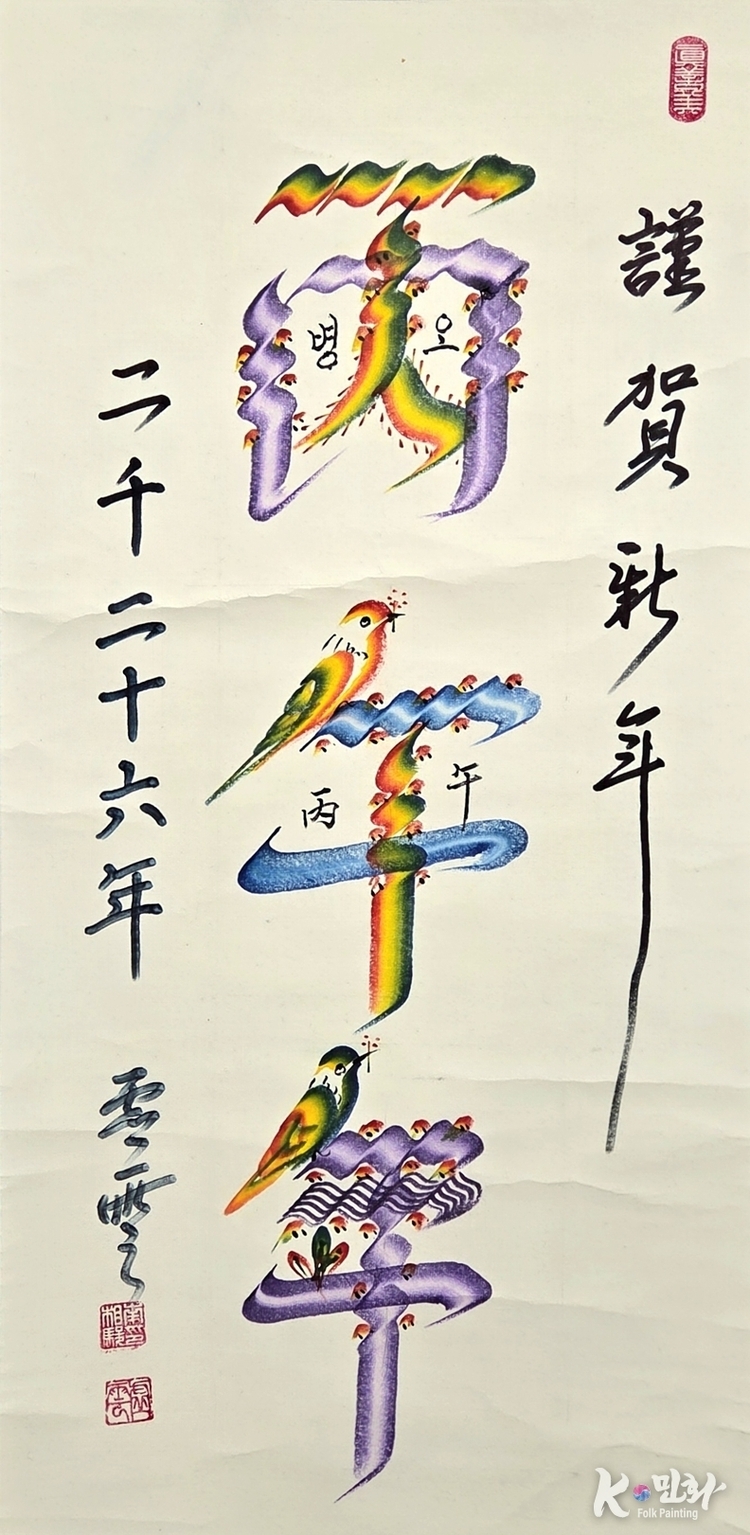 謹賀新年
丙午年
병오
丙午
二千二十六年
K민화
Folk Painting